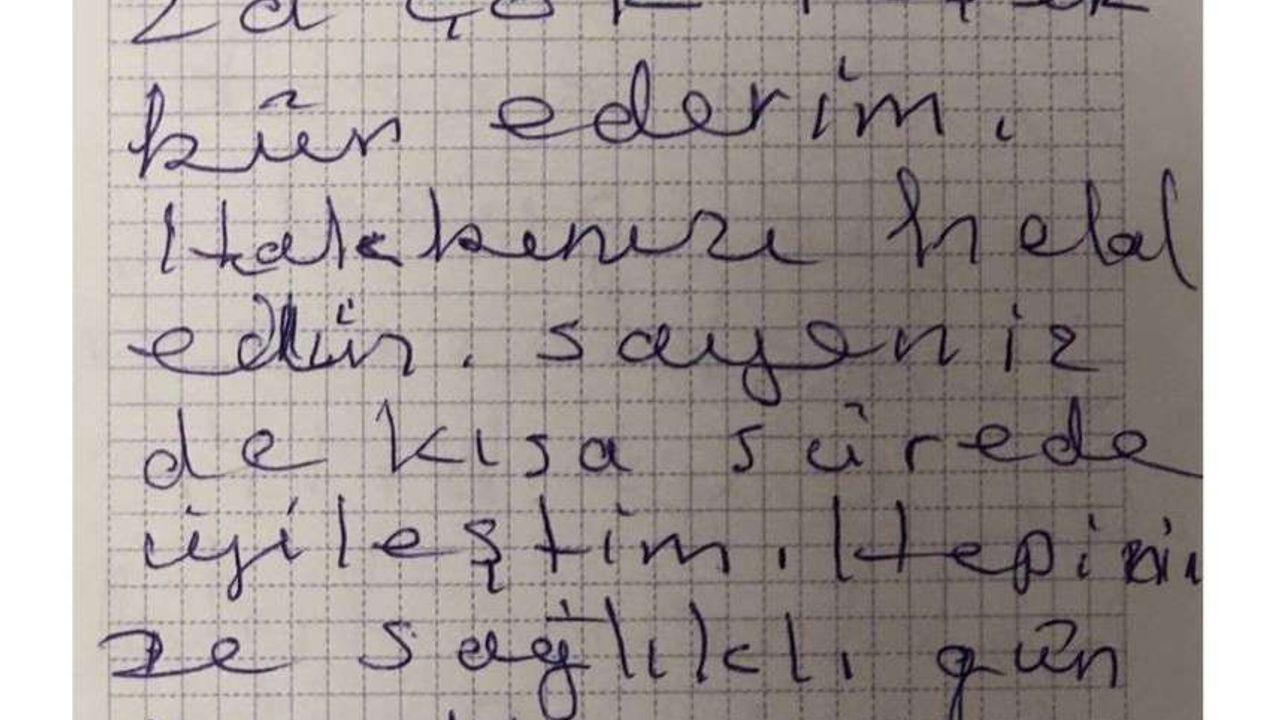 za çok teşek
kür ederim.
Hakkınızı helal
edin. sayeniz
de kısa sürede
iyileştim. Hepini
ze sağlıklı gün